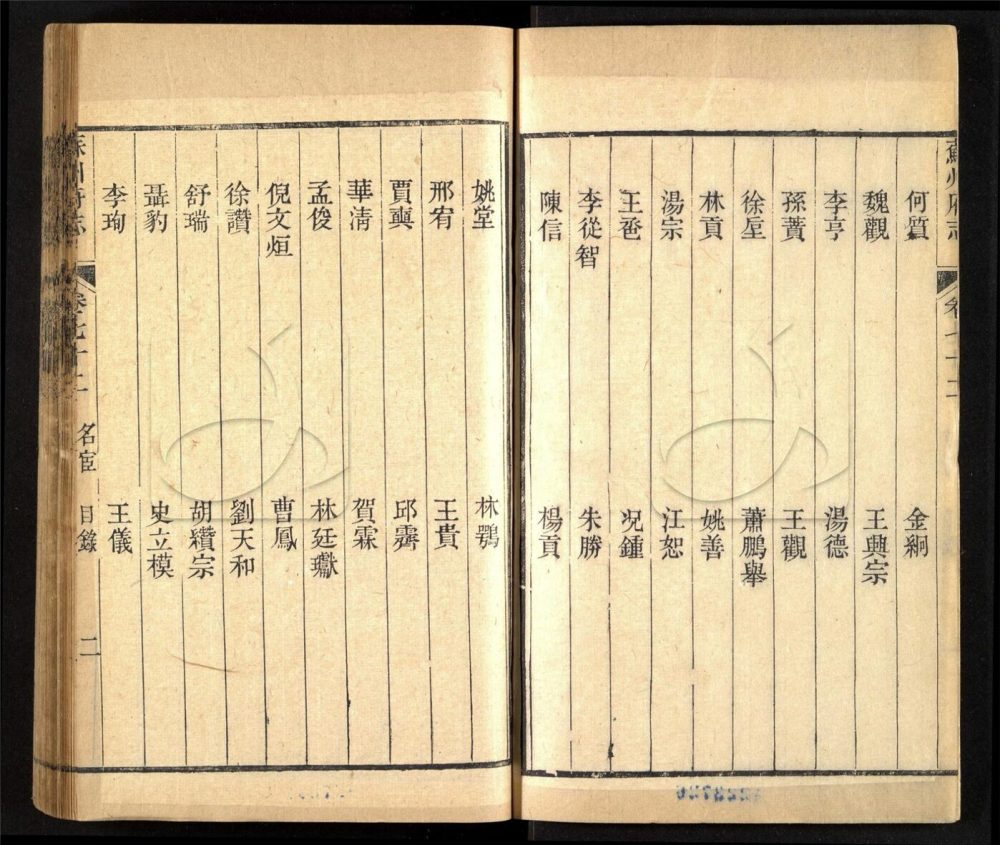 蘇州府志
何質 金絅
魏觀 王興宗
李亨 湯德
孫蕡 王觀
徐垕 蕭鵬舉
林貢 姚善
湯宗 江恕
王卺 况鍾
李從智 朱勝
陳信 楊貢
姚堂 林鶚
邢宥 王貴
賈奭 邱霽
華清 賀霖
孟俊 林廷㭿
倪文烜 曹鳳
徐讚 劉天和
舒瑞 胡纘宗
聶豹 史立模
李珣 王儀
蘇州府志 卷七十二 名宦 目錄 二